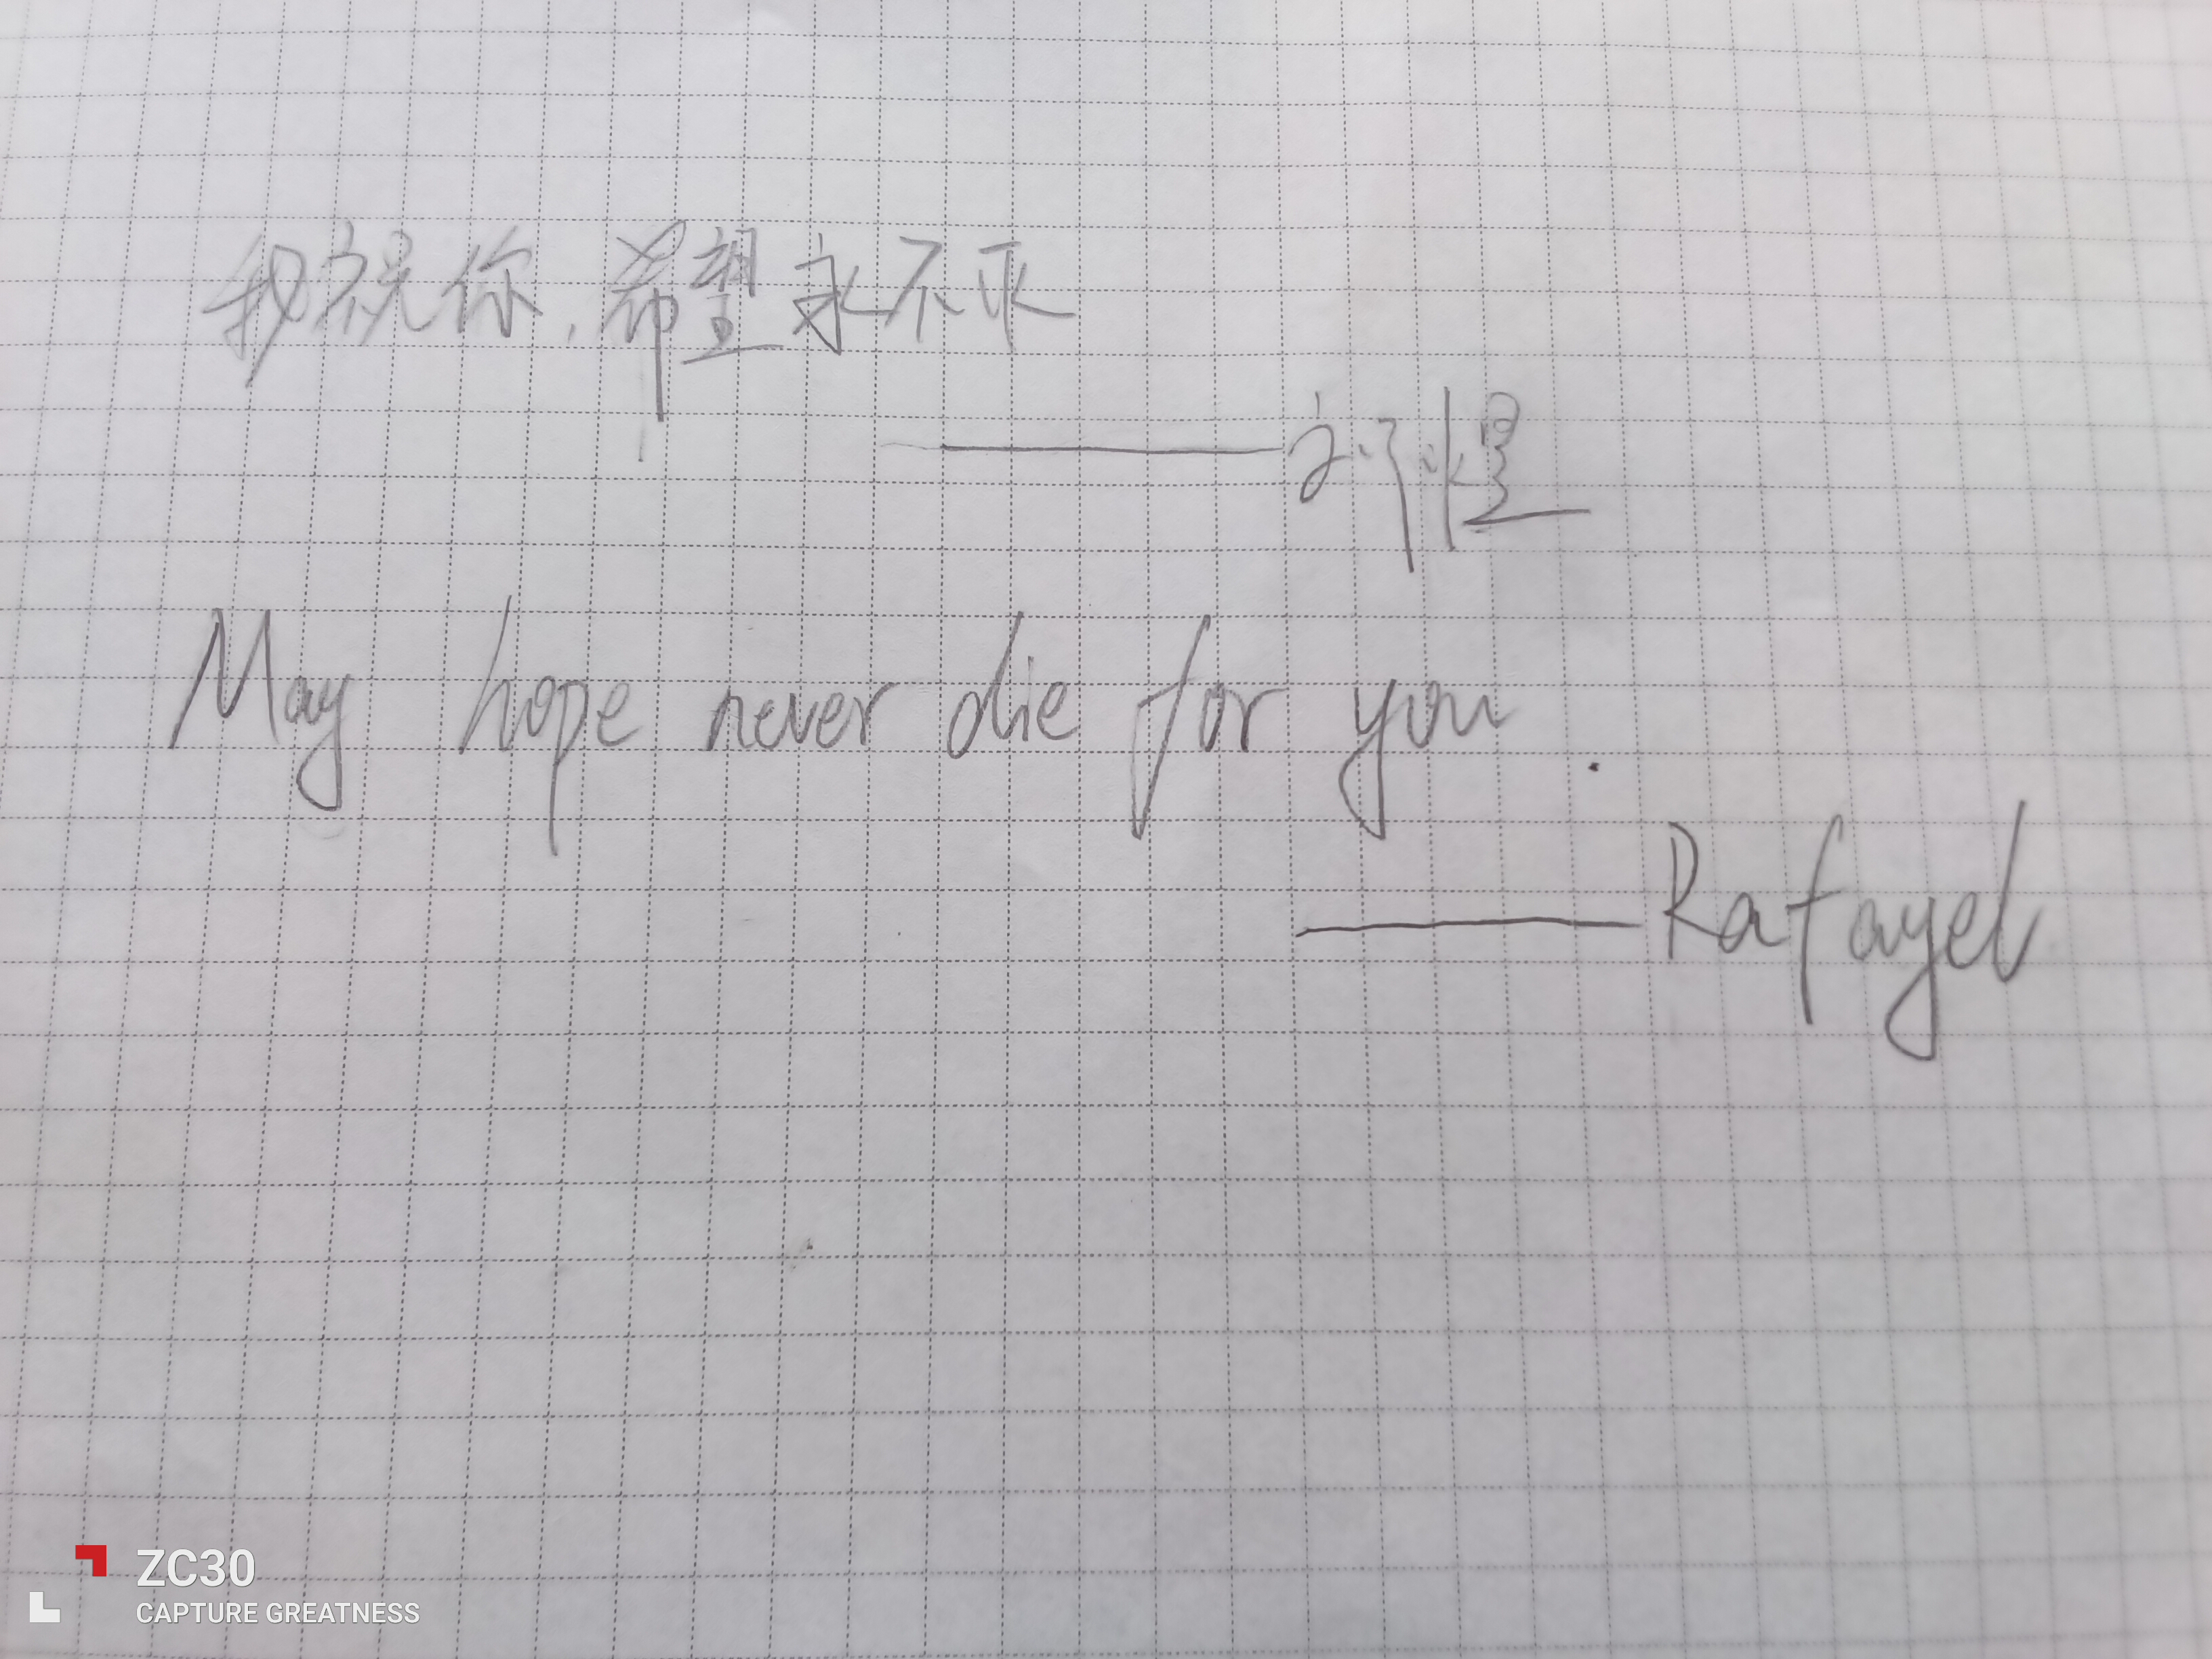 我祝你，希望永不灭
——祁煜
May hope never die for you.
——Rafayel
ZC30
CAPTURE GREATNESS